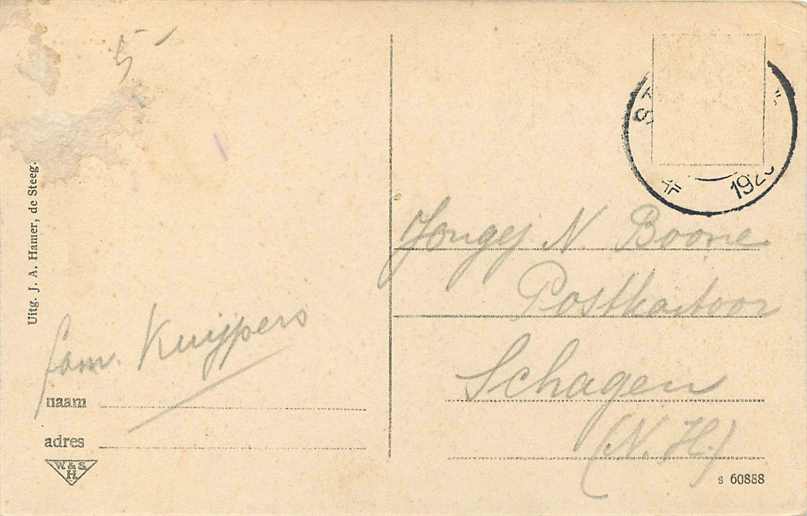 5
Uitg. J. A. Hamer, de Steeg.
Jongej N. Boone
Postkantoor
Schagen
(N. H.)
fam. Kuijpers
naam
adres
W. & S.
H.
S 60888